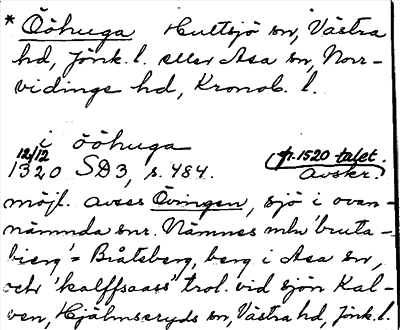 * Ööhuga Hultsjö sn, Västra
hd, Jönk. l. eller Asa sn, Norr-
vidinge hd, Kronob. l.
i ööhuga
12/12 1320 SD3, s. 484. (fr. 1520-talet. avskr.)
möjl. avses Övingen, sjö i ovan-
nämnda snr. Nämnes mln 'bruta-
bierg' = Biåtsberg, berg i Asa sn,
och 'kalffsaass' trol. vid sjön Kal-
ven, Hjälmseryds sn, Västra hd, Jönk. l.